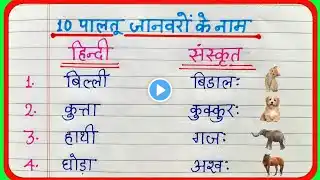 10 पालतू जानवरों के नाम
हिन्दी संस्कृत
1. बिल्ली बिडालः
2. कुत्ता कुक्कुरः
3. हाथी गजः
4. घोड़ा अश्वः